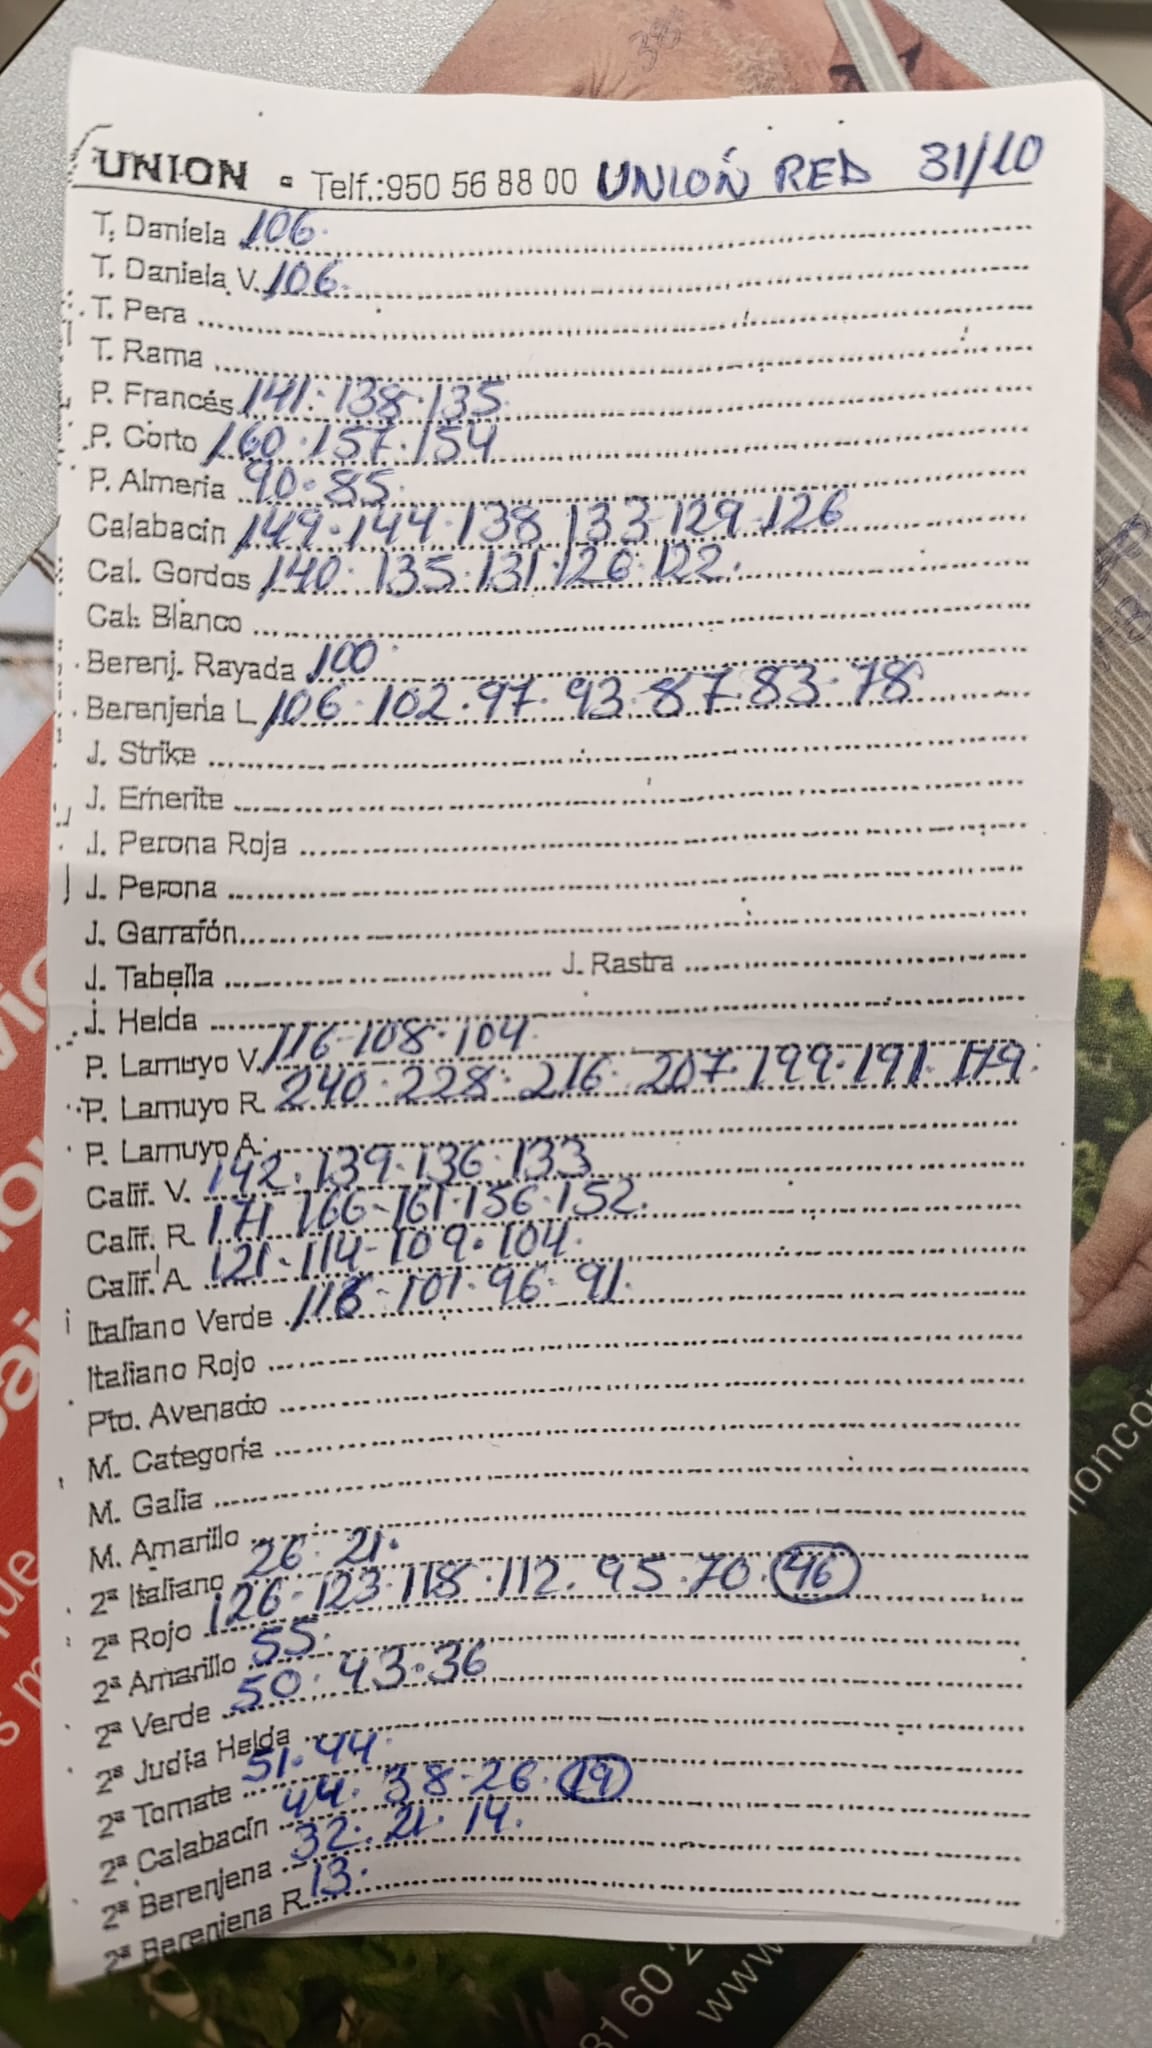 UNION - Telf.:950 56 88 00 UNIÓN RED 31/10
T. Daniela 106.
T. Daniela V. 106.
T. Pera
T. Rama
P. Francés 141. 138. 135.
P. Corto 160. 157. 154
P. Almeria 90. 85.
Calabacin 149. 144. 138 133 129. 126
Cal. Gordos 140. 135. 131. 126. 122.
Cal. Blanco
Berenj. Rayada 100.
Berenjena L 106. 102. 97. 93. 87. 83. 78
J. Strike
J. Emerite
J. Perona Roja
J. Perona
J. Garrafón
J. Tabella J. Rastra
J. Helda
P. Lamuyo V. 116-108. 104
P. Lamuyo R. 240. 228. 216. 207. 199. 191. 179.
P. Lamuyo A.
Calif. V. 142. 139. 136. 133
Calif. R. 171 166-161. 156. 152.
Calif. A. 121. 114-109. 104.
Italiano Verde 116-101. 96. 91.
Italiano Rojo
Pto. Avenado
M. Categoría
M. Galia
M. Amarillo
2ª Italiano 26. 21.
2ª Rojo 126. 123. 118. 112. 95. 70. 46
2ª Amarillo 55.
2ª Verde 50. 43. 36
2ª Judía Helda
2ª Tomate 51. 44.
2ª Calabacín 44. 38. 26. 19
2ª Berenjena 32. 21. 14.
2ª Berenjena R. 13.
381
81 60 2
www.